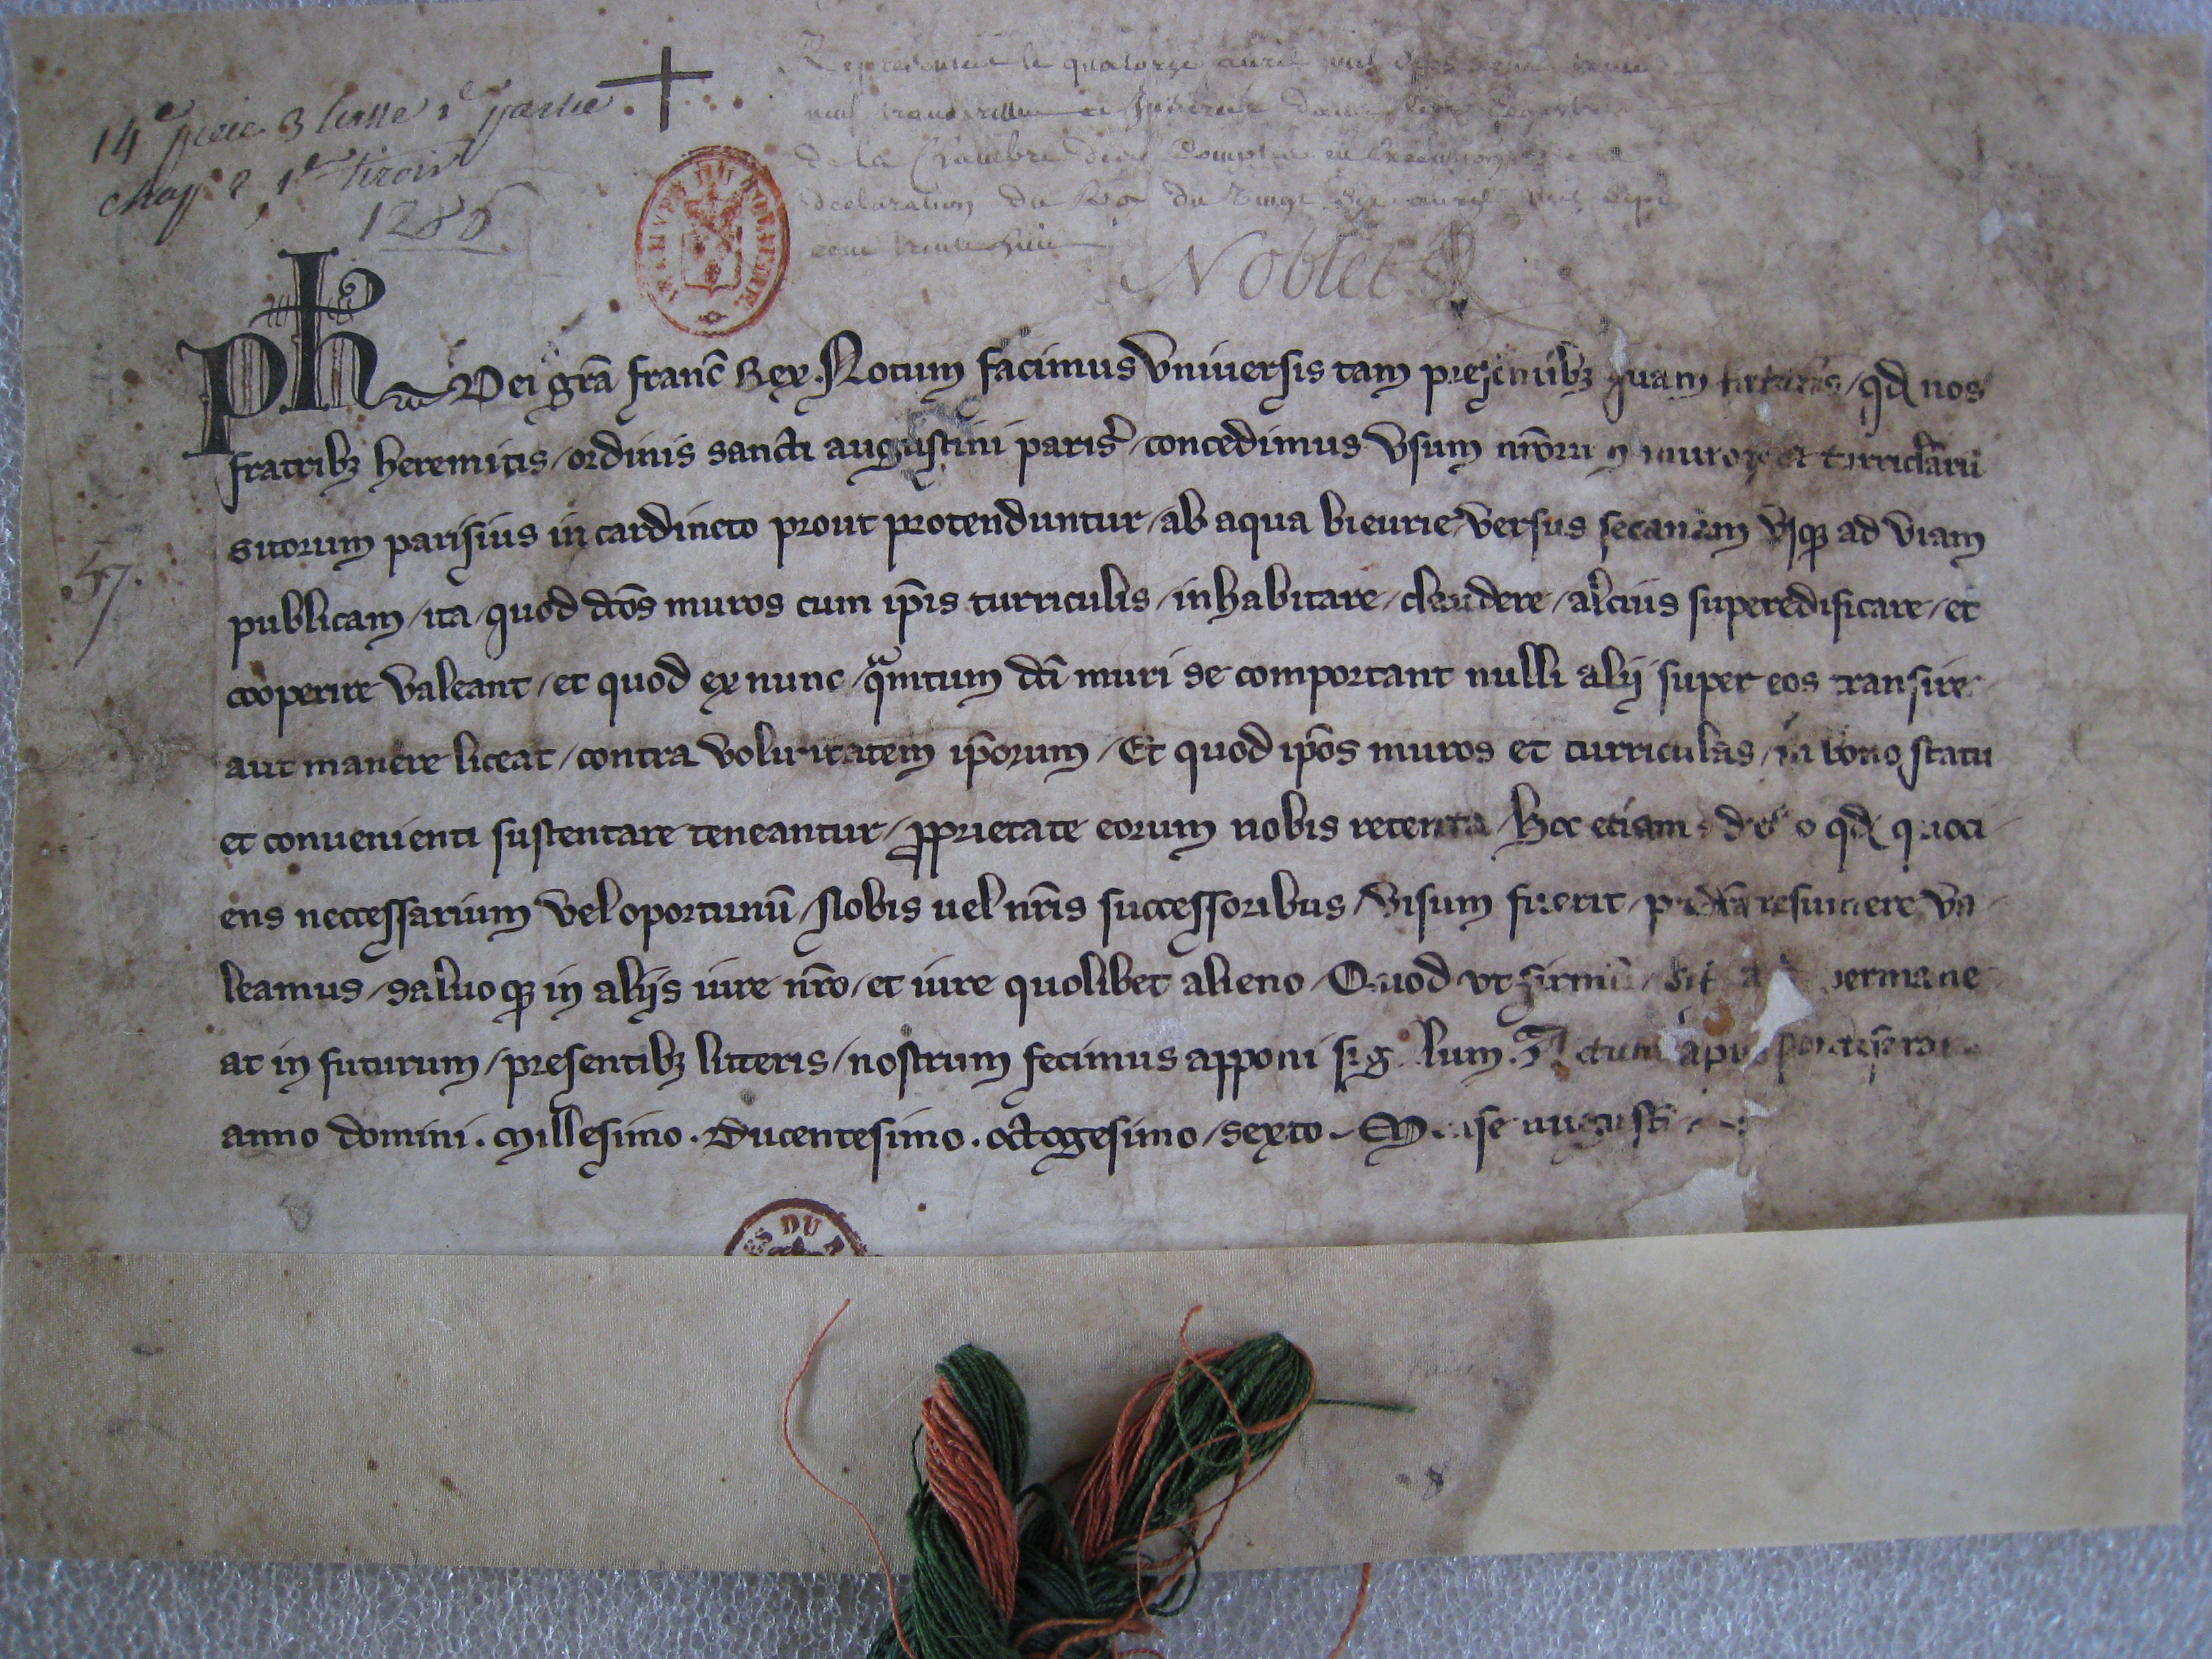 14e piece 3 liasse 2e partie
chap 2, 1er tiroir
1286
Representé le quatorze avril mil sept cent trente
neuf
de la Chambre des Comptes en Execution de la
declaration du Roy du Vingt Six avril mil sept
cent trente huit
Noblet
57.
Ph Dei gr̄a franc̄ Rex. Notum facimus Vniuersis tam presentibꝫ quam futuris / qd nos
fratribꝫ heremitis / ordinis sancti augustini paris̉ / concedimus Vsum nr̄orum muroꝝ et turriclarū
sitorum parisius in cardineto prout protenduntur / ab aqua bieurie versus secanam Vsqꝫ ad Viam
publicam / ita / quod dc̄os muros cum ip̄is turriculis / inhabitare / claudere / alcius superedificare / et
cooperire Valeant / et quod ex nunc / quantum dc̄i muri se comportant nulli alij super eos transire
aut manere liceat / contra Voluntatem ip̄orum / Et quod ip̄os muros et turriculas / in bono statu
et conuenienti sustentare teneantur / ꝓprietate eorum nobis retenta / Hoc etiam qd quoci
ens neccessarium Vel oportunū / Nobis uel nr̄is successoribus / Visum fuerit / resumere Va
leamus / saluoqꝫ in alijs iure nr̄o / et iure quolibet alieno / Quod vt firmū / sit permane
at in futurum / presentibꝫ litteris / nostrum fecimus apponi sigillum. Actum apud
anno domini. Millesimo. Ducentesimo. octogesimo / sexto. Mense august
DU